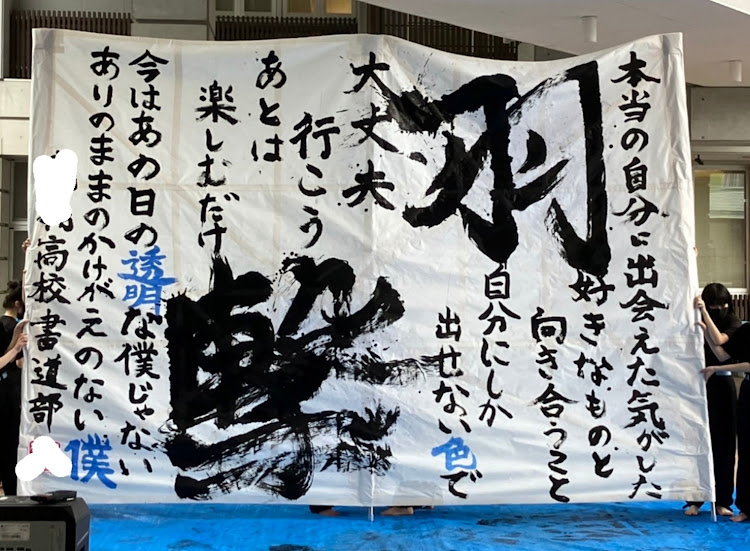 羽撃
本当の自分に出会えた気がした
好きなものと
向き合うこと
自分にしか
出せない色で
大丈夫
行こう
あとは
楽しむだけ
今はあの日の透明な僕じゃない
ありのままのかけがえのない僕
高校書道部